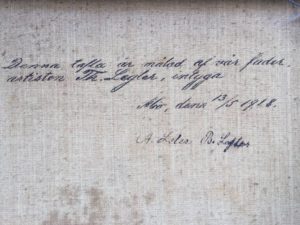 Denna tafla är målad af vår fader
artisten Th. Legler, intyga
Åbo, den 13/5 1918.
A. B. Legler